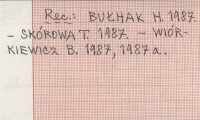 Rec.: BUŁHAK H. 1987
– SKÓROWA T. 1987. – WIÓR-
KIEWICZ B. 1987, 1987a.